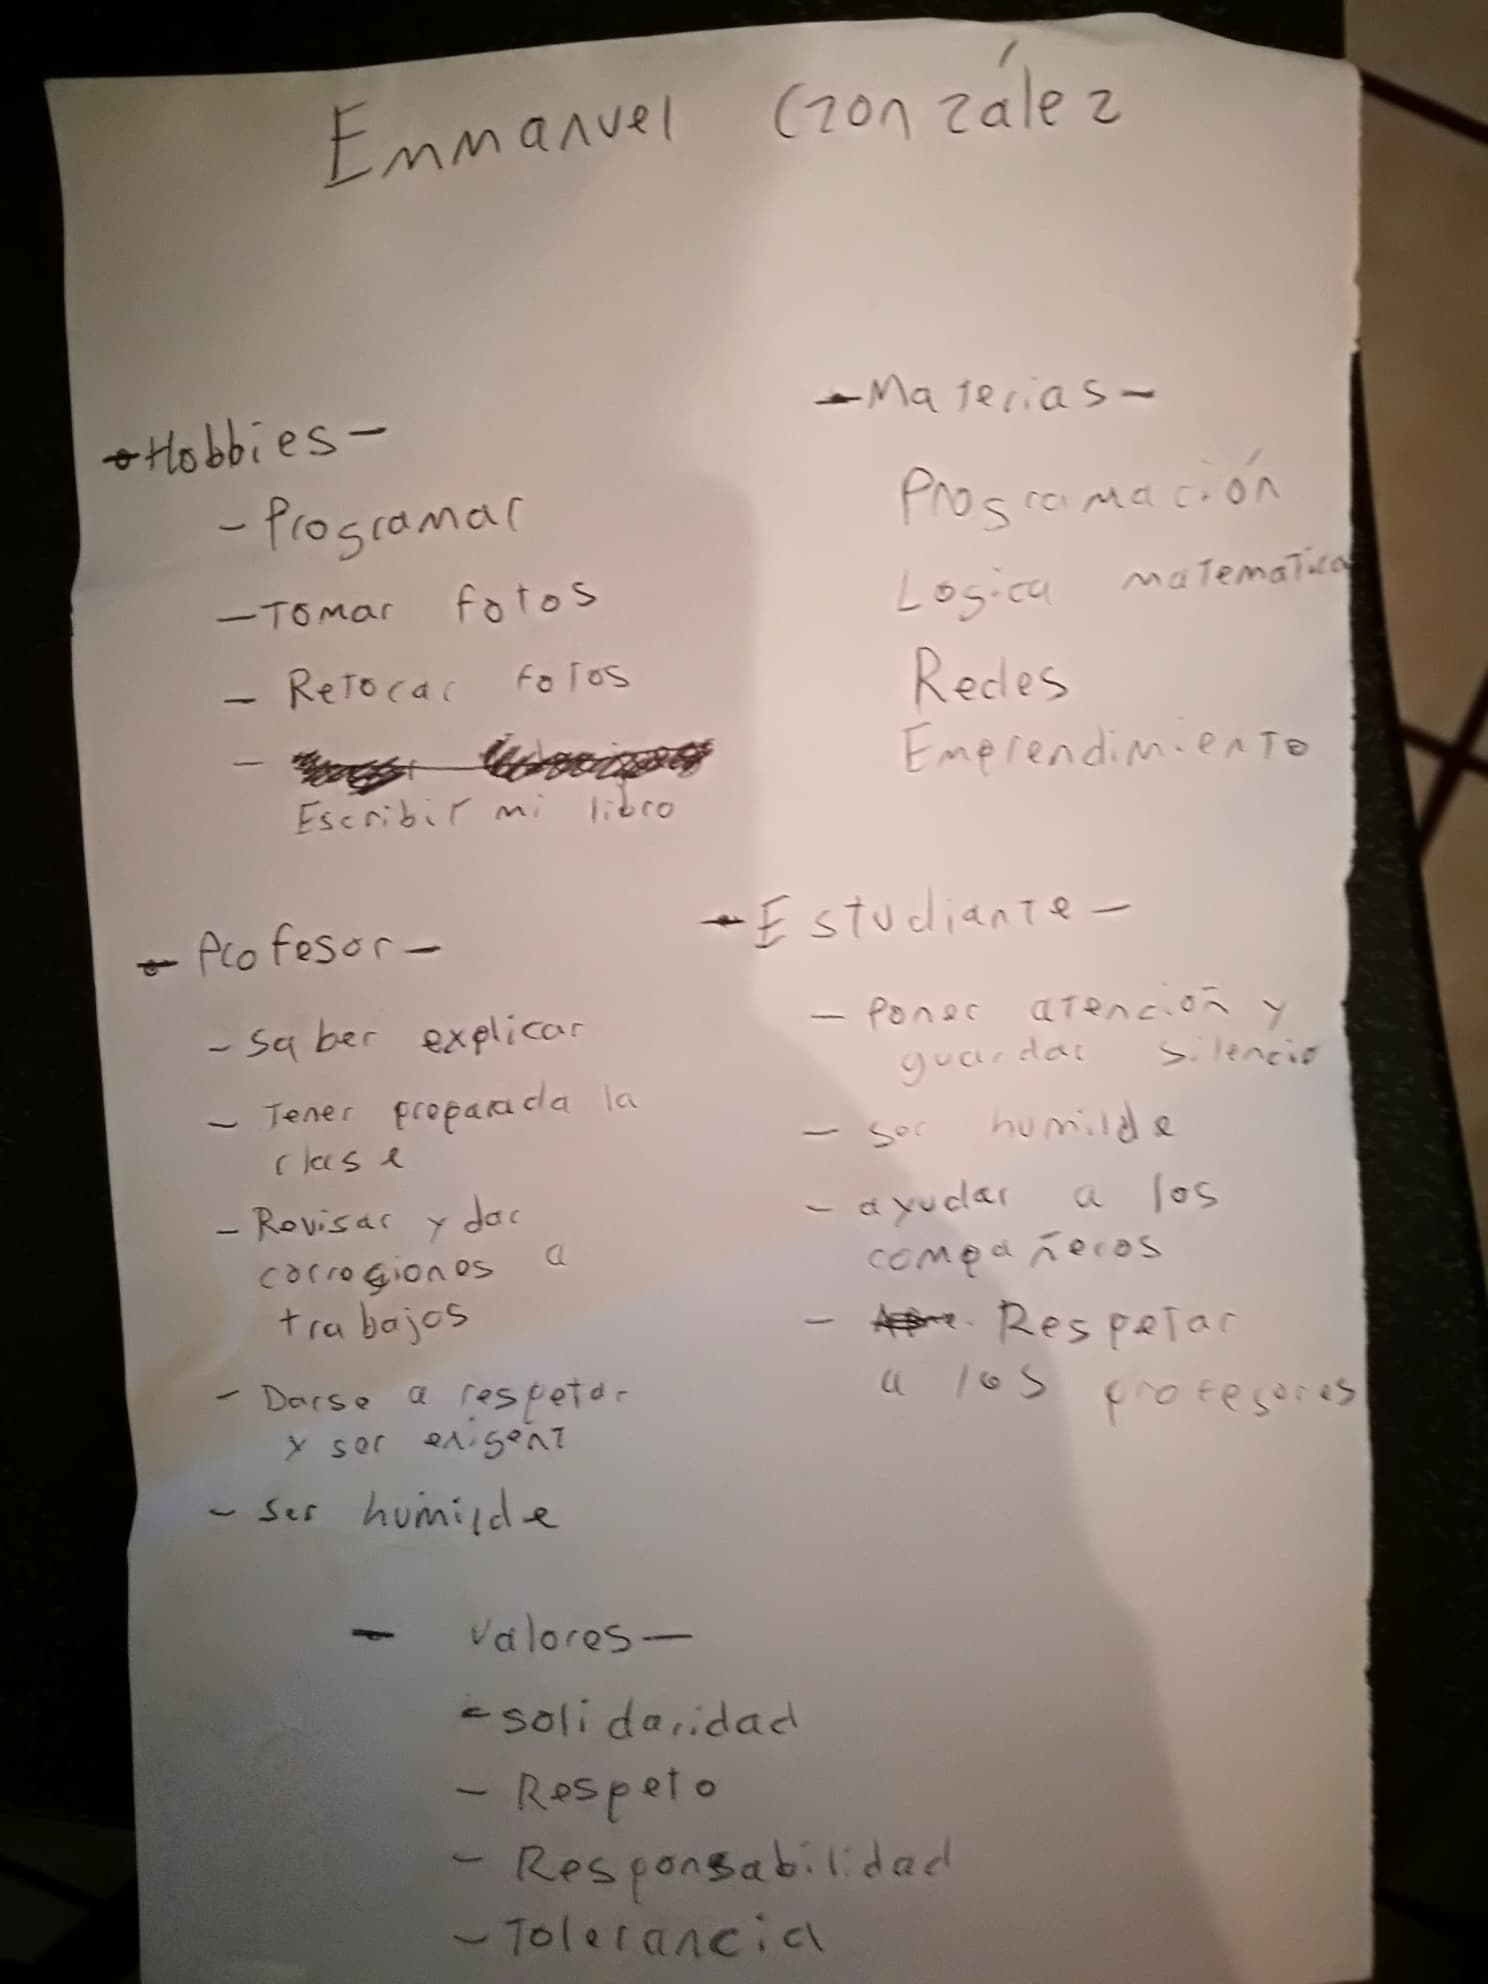 Emmanuel González
- Hobbies -
- Programar
- Tomar fotos
- Retocar fotos
-
Escribir mi libro
- Materias -
Programación
Logica matematica
Redes
Emprendimiento
- Profesor -
- Saber explicar
- Tener preparada la
clase
- Revisar y dar
corregiones a
trabajos
- Darse a respetar
y ser exigent
- Ser humilde
- Estudiante -
- Poner atención y
guardar silencio
- ser humilde
- ayudar a los
compañeros
- Respetar
a los profesores
- valores -
- solidaridad
- Respeto
- Responsabilidad
- Tolerancia